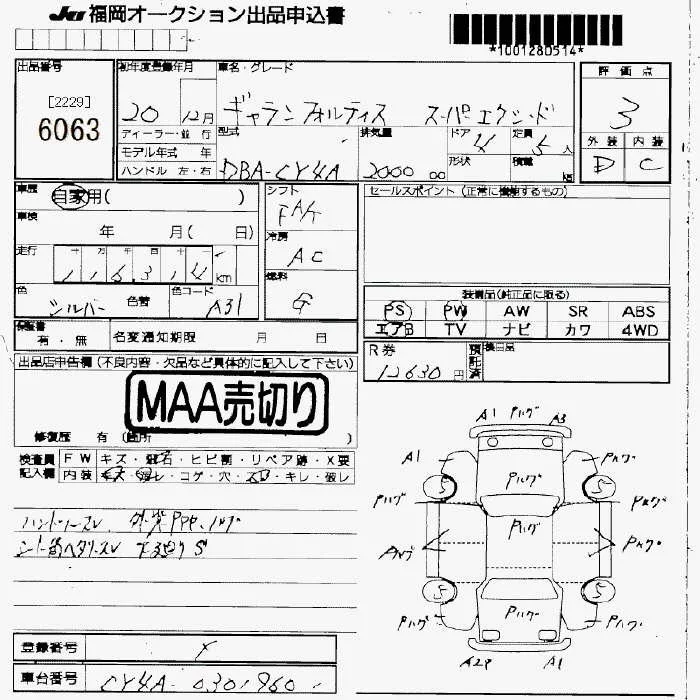 JU 福岡オークション出品申込書
*1001280514*
出品番号
[2229]
6063
初年度登録年月
20 12月
車名・グレード
ギャラン フォルティス スーパーエクシード
ディーラー・並行
モデル年式 年
ハンドル 左・右
型式
DBA-CY4A
排気量
2000 cc
ドア
4
形状
定員
5人
積載
kg
評価点
3
外装 内装
D C
車歴
自家用( )
車検
年 月( 日)
走行
十 万 千 百 十 一
1 1 6 3 1 4 km
色
シルバー
色替
色コード
A31
シフト
FAT
冷房
AC
燃料
G
セールスポイント (正常に機能するもの)
装備品(純正品に限る)
PS PW AW SR ABS
エアB TV ナビ カワ 4WD
保証書
有・無
名変通知期限 月 日
R券
12630円
預託済
後日品
出品店申告欄 (不良内容・欠品など具体的に記入して下さい)
MAA売切り
修復歴 有 (箇所 )
検査員記入欄
FW キズ・飛石・ヒビ割・リペア跡・X要
内装 キズ・汚レ・コゲ・穴・スレ・キレ・破レ
ハンドルスレ
下廻りS
登録番号
車台番号
CY4A-0301960
A1 Pハゲ A3
A1 Pハゲ Pハゲ
Pハゲ 5 5 Pハゲ
Pハゲ
Pハゲ Pハゲ
5 5
Pハゲ Pハゲ Pハゲ
A2P A1